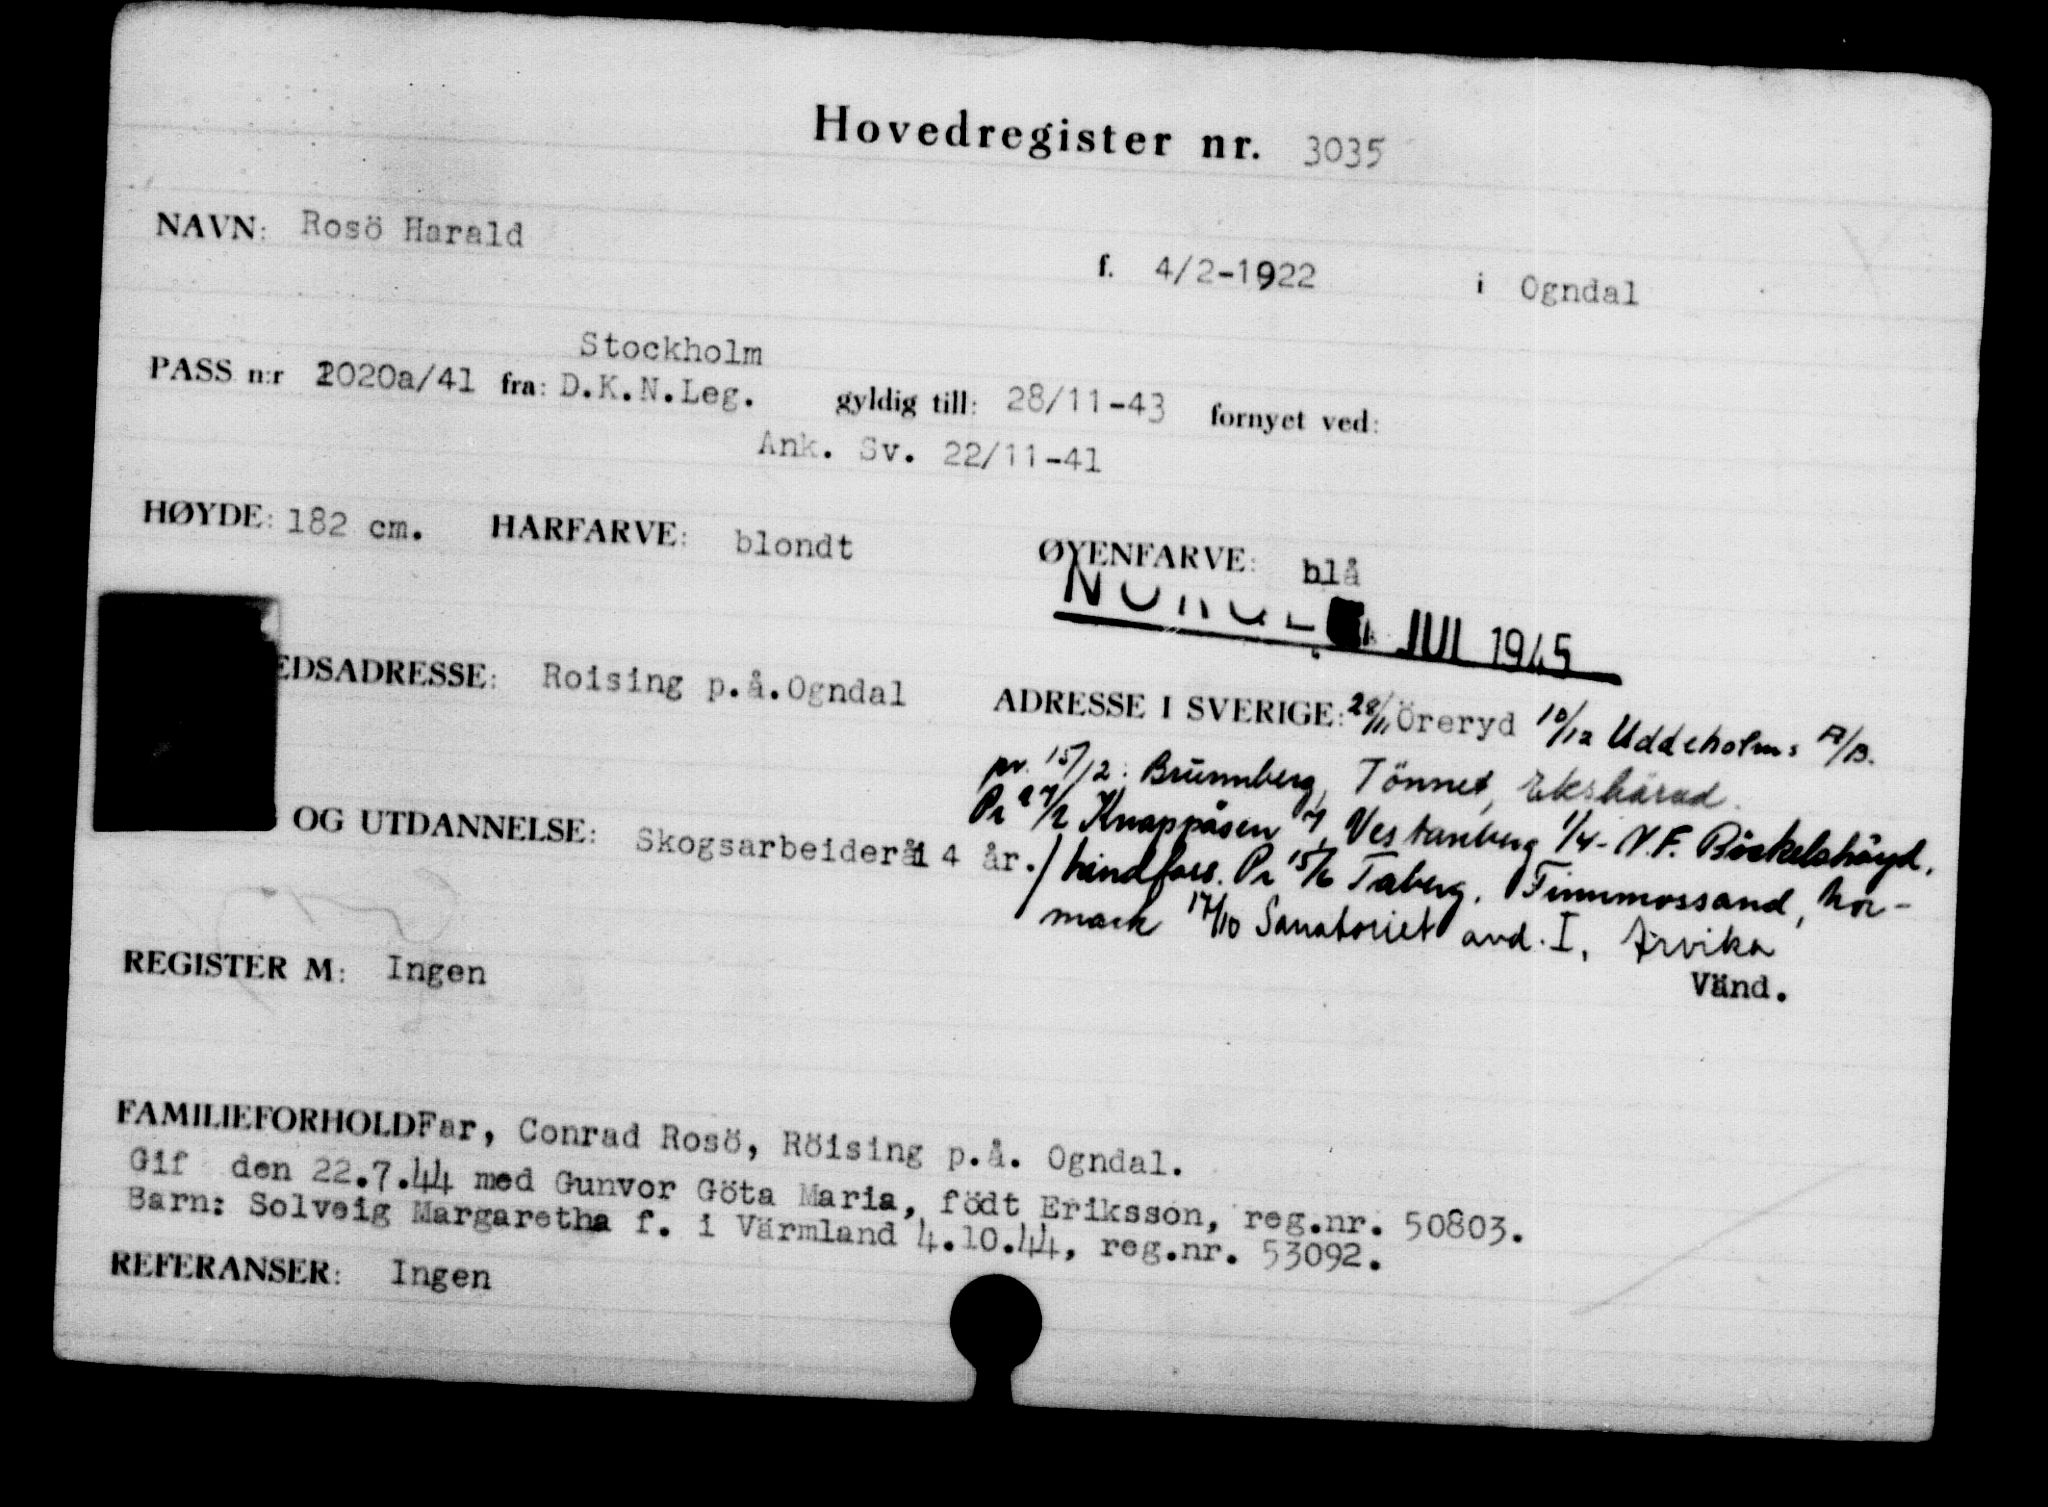 Hovedregister nr. 3035
NAVN: Rosö Harald
f. 4/2-1922 i Ogndal
Stockholm
PASS n:r 1020a/41 fra: D.K.N.Leg. gyldig till: 28/11-43 fornyet ved:
Ank. Sv. 22/11-41
HØYDE: 182 cm. HARFARVE: blondt ØYENFARVE: blå
NORGE JUL 1945
EDSADRESSE: Roising p.å.Ogndal
ADRESSE I SVERIGE: 28/11 Öreryd 10/12 Uddeholms A/B.
pr. 15/12: Brunnberg, Tönnet, Ekshärad.
Pr 27/2 Knappåsen 7, Vestanberg 1/4- N.F.
OG UTDANNELSE: Skogsarbeider i 4 år.
Lindfors. Pr 15/6 Taberg, Finnmossand, Nor-
mark 17/10 Sanatoriet avd. I, Arvika
Vänd.
REGISTER M: Ingen
FAMILIEFORHOLD Far, Conrad Rosö, Röising p.å. Ogndal.
Gif den 22.7.44 med Gunvor Göta Maria, födt Eriksson, reg.nr. 50803.
Barn: Solveig Margaretha f. i Värmland 4.10.44, reg.nr. 53092.
REFERANSER: Ingen